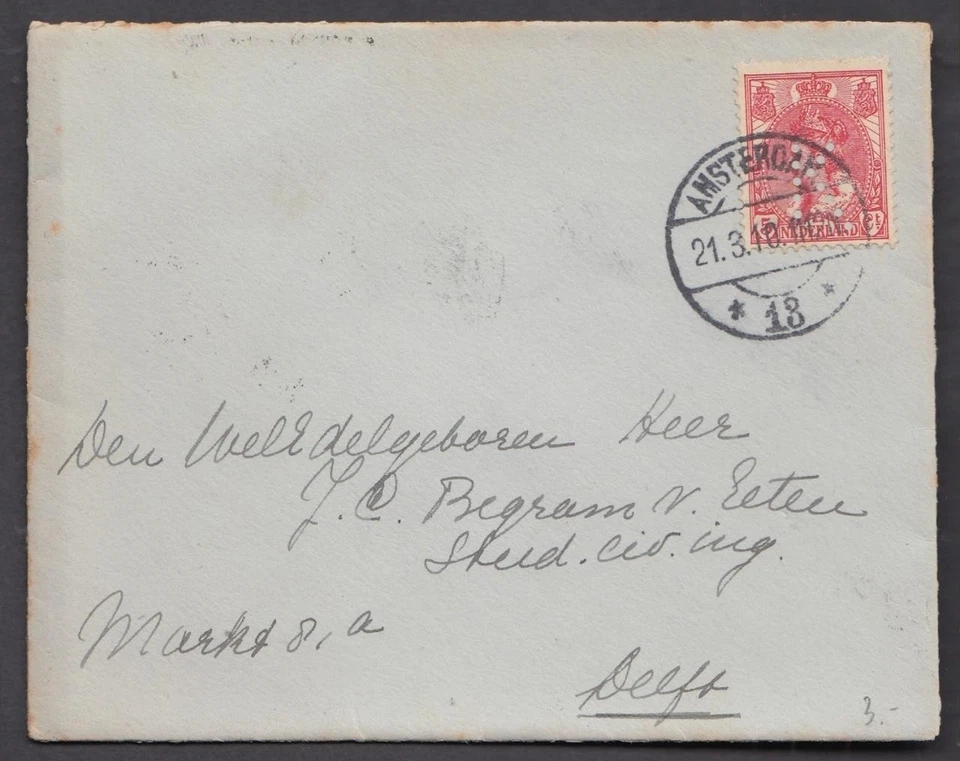 AMSTERDAM
21.3.10.
* 13 *
5 NEDERLAND Ct.
Den WelEdelgeboren Heer
J. C. Begram v. Eeten
Stud. civ. ing.
Markt 8, a
Delft
3.-